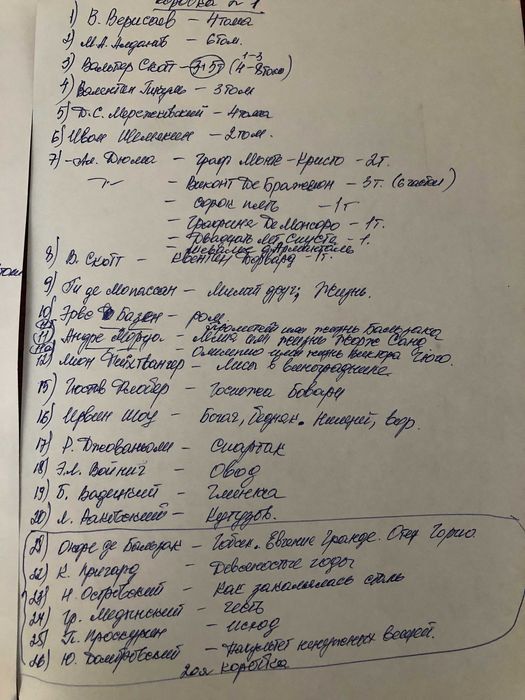 Коробка №1
1) В. Вересаев – 4 тома
2) М.А. Алданов – 6 том.
3) Вальтер Скотт – (4–8 тома) 1–3
4) Валентин Пикуль – 3 том
5) Д.С. Мережковский – 4 тома
6) Иван Шемякин – 2 том.
7) Ал. Дюма – Граф Монте-Кристо – 2 т.
– Виконт Де Бражелон – 3 т. (6 частей)
– Сорок пять – 1 т
– Графиня Де Монсоро – 1 т.
– Двадцать лет спустя – 1.
– Шевалье д'Арманталь
8) В. Скотт – Квентин Дорвард – 1 т.
9) Ги де Мопассан – Милый друг, Жизнь.
10) Эрве Базен – ром.
Прометей или жизнь Бальзака
11) Андре Моруа – Лелия или жизнь Жорж Санд.
11а) Олимпио или жизнь Виктора Гюго.
12) Лион Фейхтвангер – Лисы в винограднике
15) Гюстав Флобер – Госпожа Бовари
16) Ирвин Шоу – Богач, бедняк. Нищий, вор.
17) Р. Джованьоли – Спартак
18) Э.Л. Войнич – Овод
19) Б. Вадецкий – Глинка
20) Л. Раковский – Кутузов.
21) Оноре де Бальзак – Гобсек. Евгения Гранде. Отец Горио
22) К. Причард – Девяностые годы
23) Н. Островский – Как закалялась сталь
24) Гр. Медынский – Честь
25) П. Проскурин – Исход
26) Ю. Домбровский – Факультет ненужных вещей.
2ая коробка